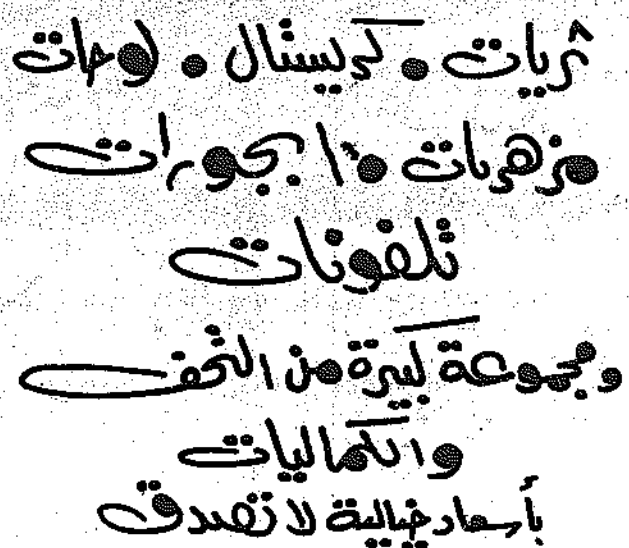 ثريات • كريستال • لوحات
مزهريات • ابجورات
تلفونات
ومجموعة كبيرة من التحف
والكماليات
بأسعار خيالية لا تصدق